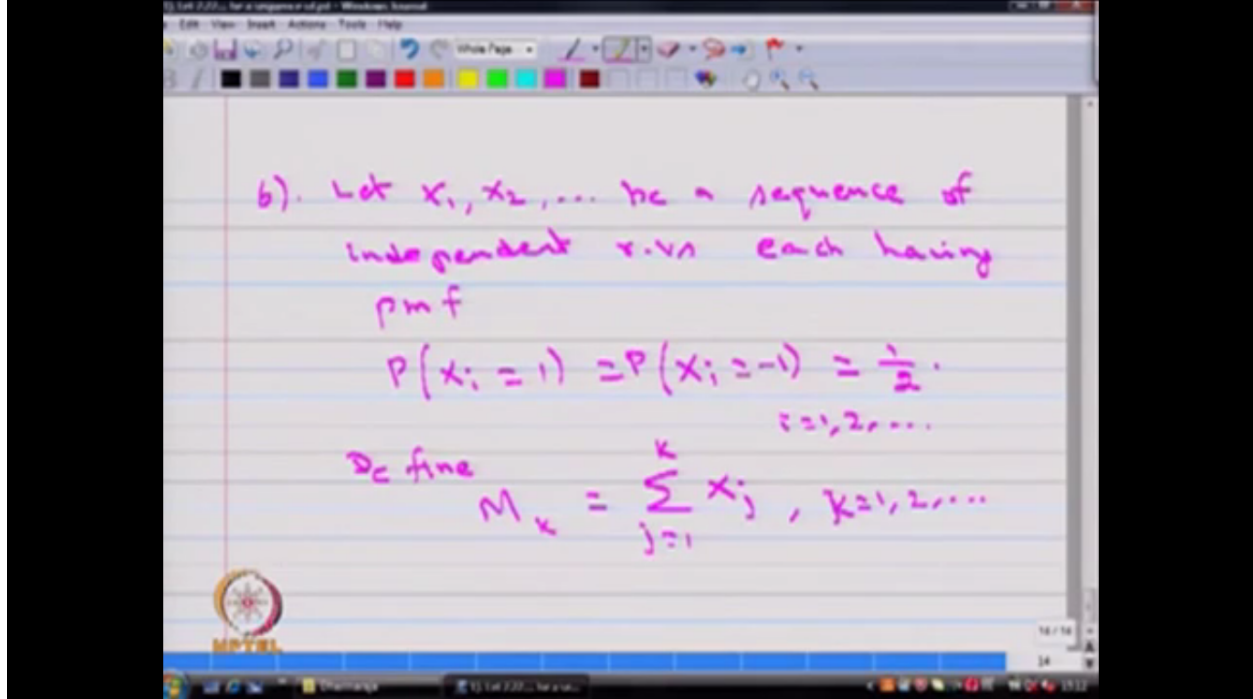 Edit View Insert Actions Tools Help
Whole Page
6). Let X₁, X₂, ... be a sequence of
independent r.vs each having
pmf
P(Xᵢ = 1) = P(Xᵢ = -1) = 1/2 .
i=1, 2, ....
Define
M_k = Σ_{j=1}^{k} X_j , k=1, 2, ...
NPTEL
14
15:12